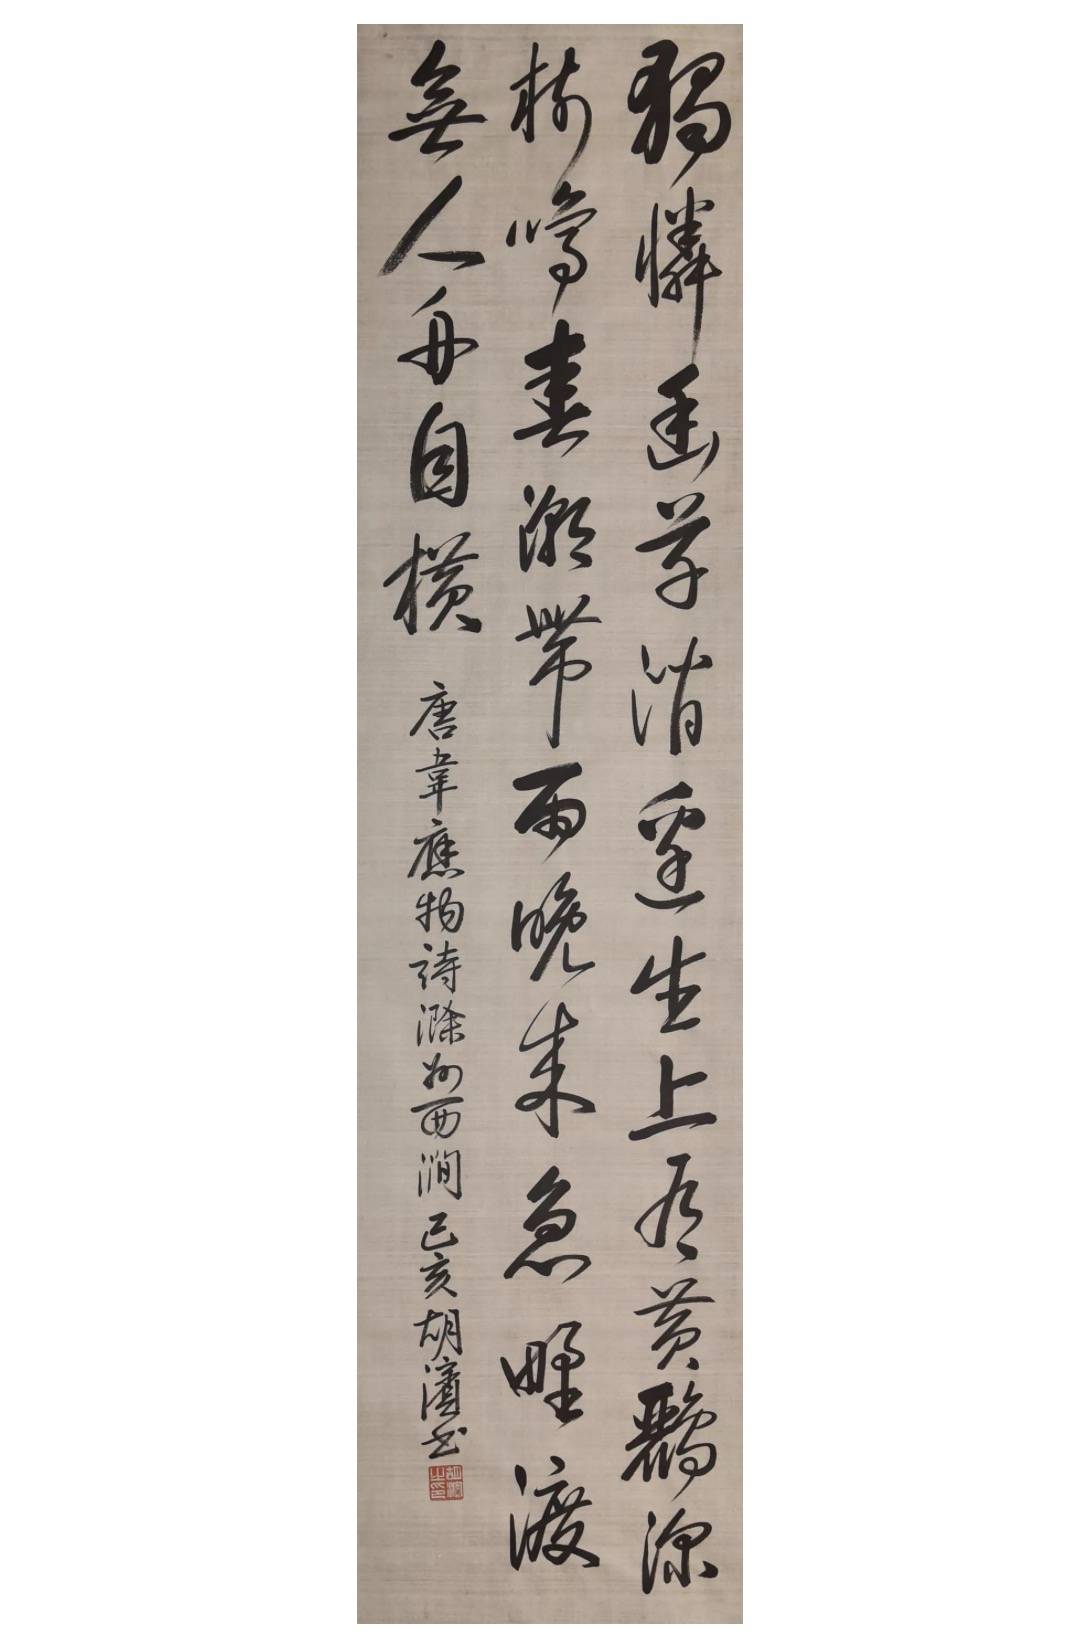 獨憐幽草澗邊生上有黃鸝深
樹鳴春潮帶雨晚来急野渡
無人舟自橫 唐韋應物詩滁州西澗 己亥胡濱书
胡濱之印